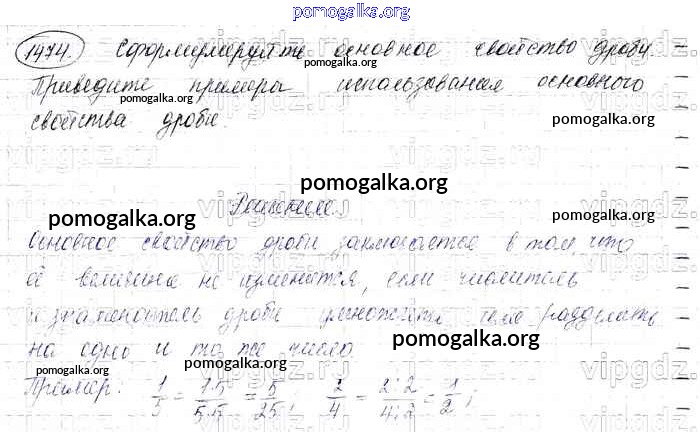 pomogalka.org
1474. Сформулируйте основное свойство дроби.
pomogalka.org
Приведите примеры использования основного
pomogalka.org
pomogalka.org
свойства дроби.
pomogalka.org
pomogalka.org
pomogalka.org
Решение.
Основное свойство дроби заключается в том, что
её величина не изменится, если числитель
и знаменатель дроби умножить или разделить
pomogalka.org
на одно и то же число.
pomogalka.org
pomogalka.org
Пример: 1/5 = 1·5/5·5 = 5/25; 2/4 = 2:2/4:2 = 1/2;